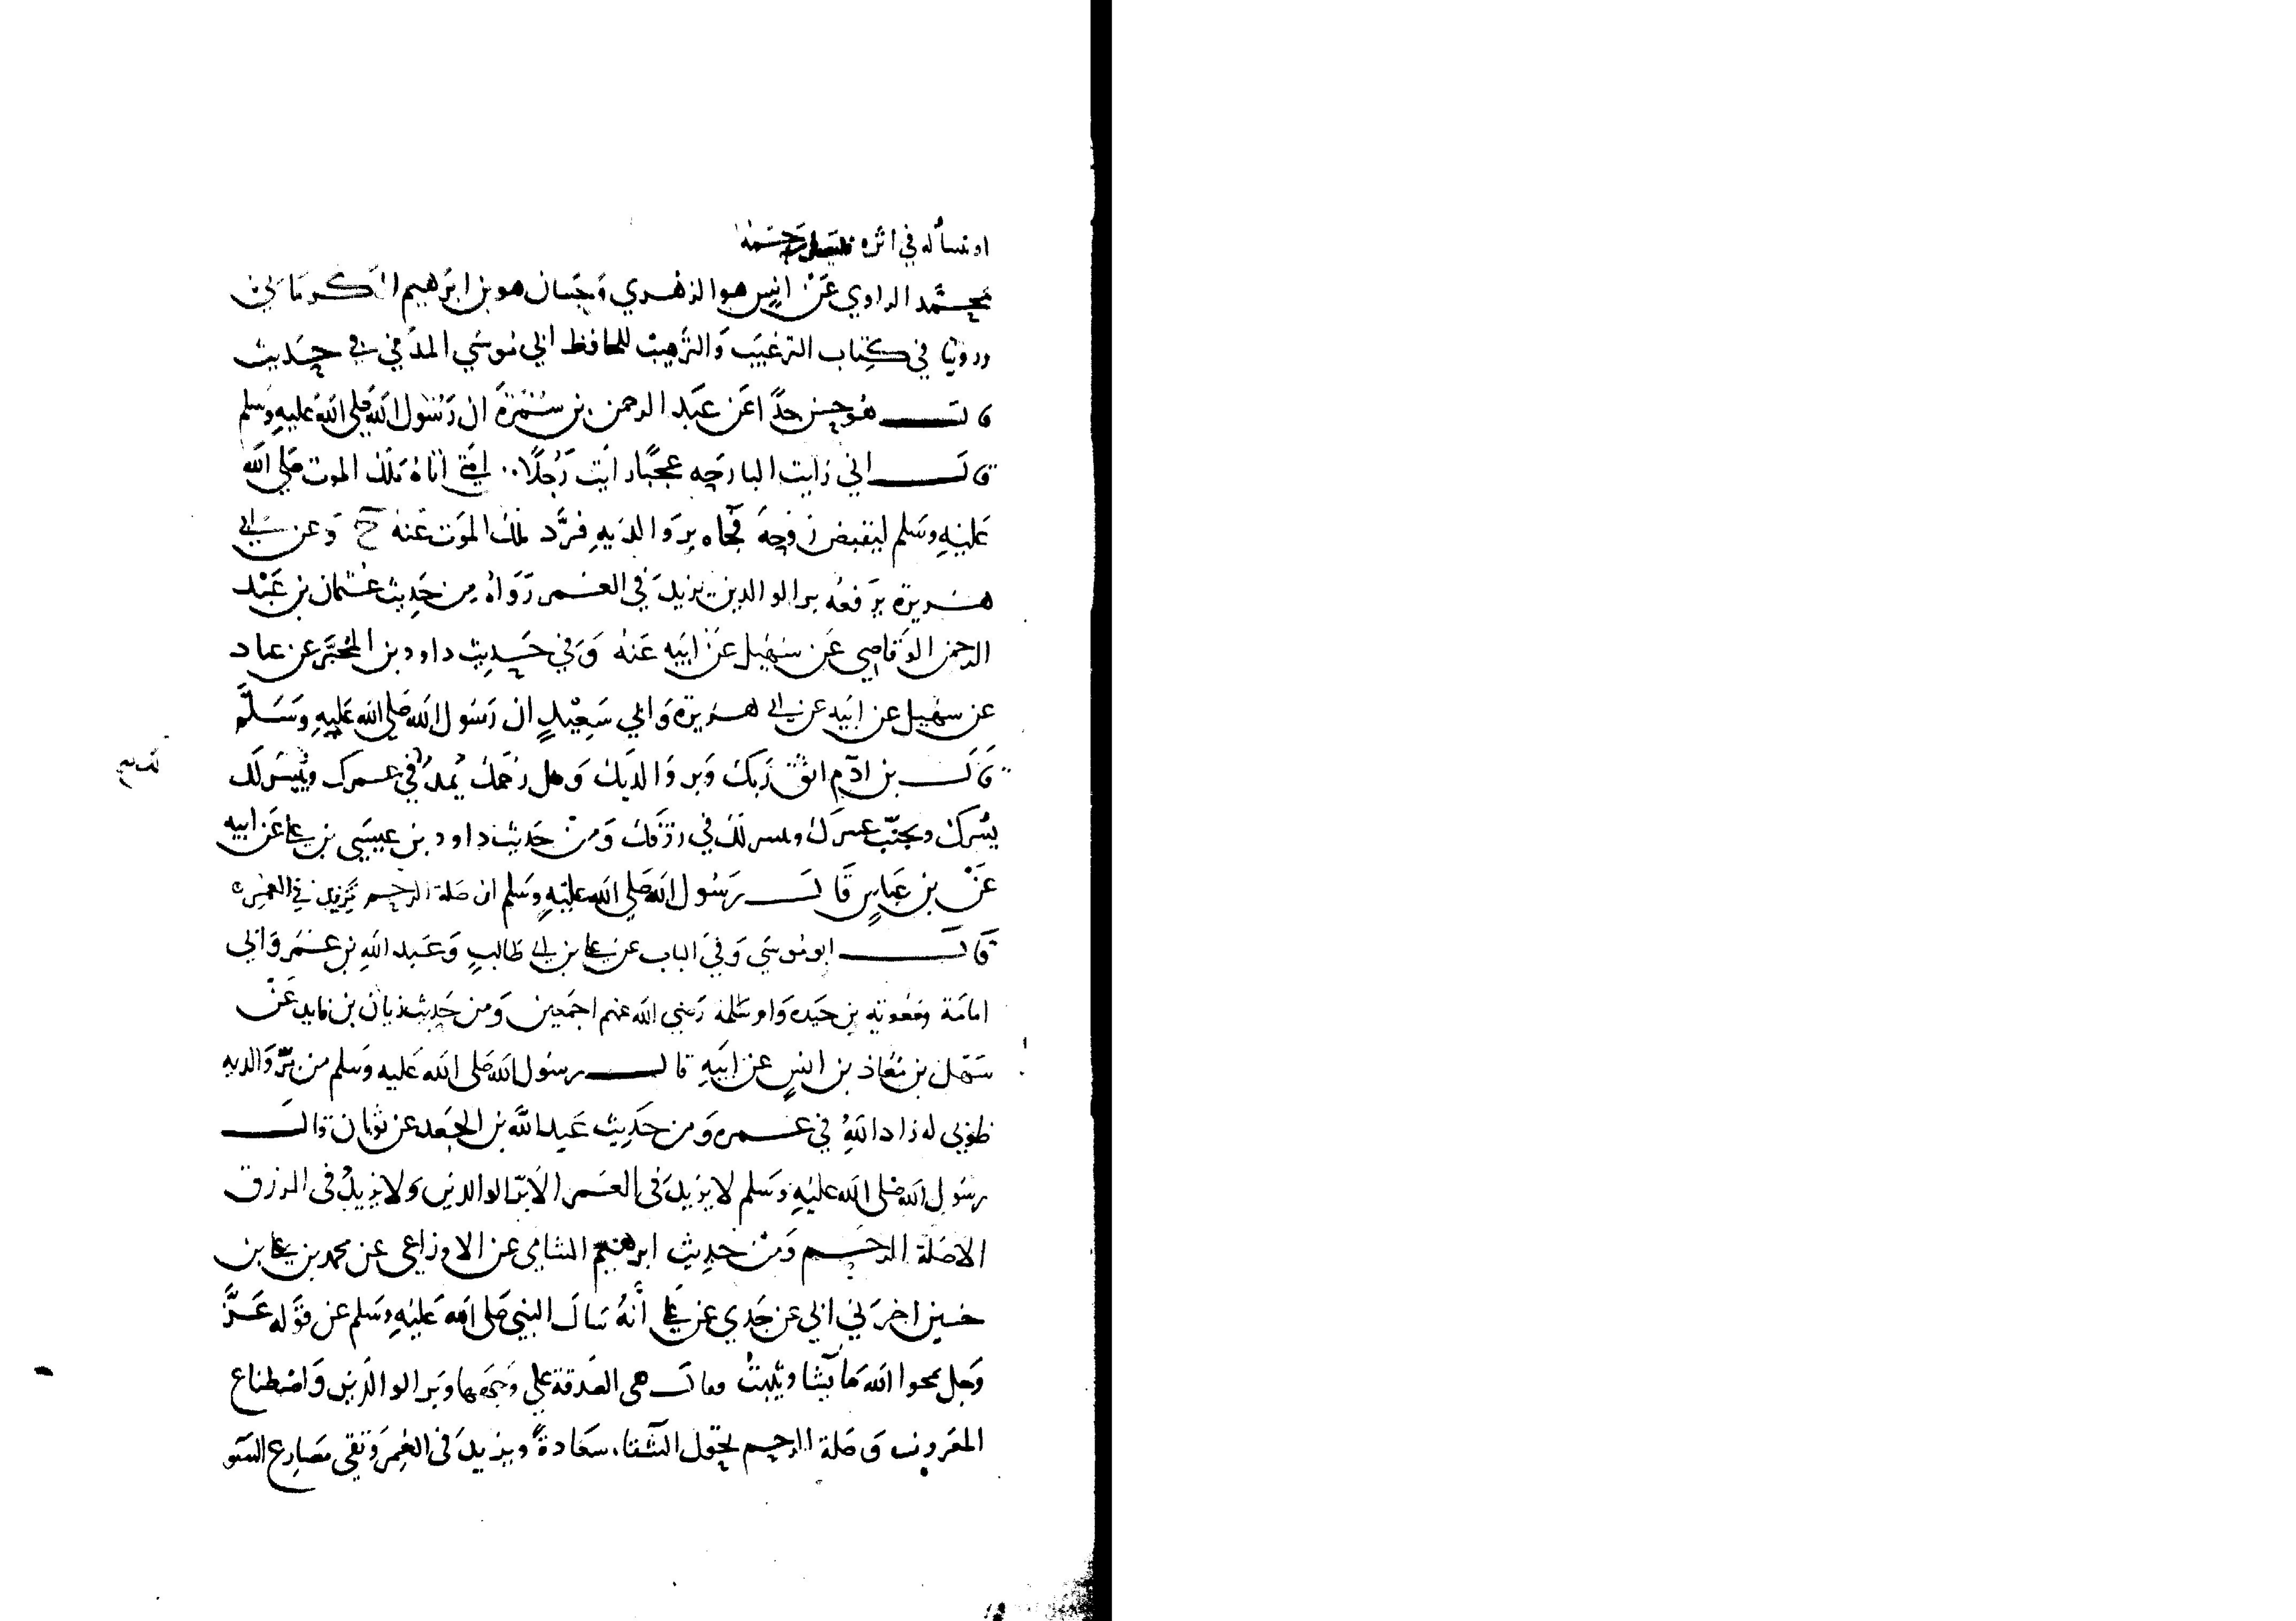 او نسأله في اثره فليصل رحمه
محمد الراوي عن انس هو الزهري وحسان هو بن ابرهيم الكرماني
وروينا في كتاب الترغيب والترهيب للحافظ ابي موسي المديني في حديث
قال هو حسن جدا عن عبد الرحمن بن سمرة ان رسول الله صلى الله عليه وسلم
قال اني رايت البارحه عجبا رايت رجلا من امتي اتاه ملك الموت صلى الله
عليه وسلم ليقبض روحه فجاه بر والديه فرد ملك الموت عنه ح وعن ابي
هريرة يرفعه بر الوالدين يزيد في العمر رواه من حديث عثمان بن عبد
الرحمن الوقاصي عن سهيل عن ابيه عنه وفي حديث داود بن المحبر عن عباد
عن سهيل عن ابيه عن ابي هريرة وابي سعيد ان رسول الله صلى الله عليه وسلم
قال بن ادم اتق ربك وبر والديك وصل رحمك يمد في عمرك وييسر لك
يسرك ويجنب عسرك وييسر لك في رزقك ومن حديث داود بن عيسي بن علي عن ابيه
عن بن عباس قال رسول الله صلى الله عليه وسلم ان صلة الرحم تزيد في العمر
قال ابو موسي وفي الباب عن علي بن ابي طالب وعبد الله بن عمر وابي
امامة ومعوية بن حيده وام سلمة رضي الله عنهم اجمعين ومن حديث زبان بن فايد عن
سهل بن معاذ بن انس عن ابيه قال رسول الله صلى الله عليه وسلم من بر والديه
طوبى له زاد الله في عمره ومن حديث عبد الله بن الجعد عن ثوبان قال
رسول الله صلى الله عليه وسلم لا يزيد في العمر الا بر الوالدين ولا يزيد في الرزق
الا صلة الرحم ومن حديث ابرهيم الشامي عن الاوزاعي عن محمد بن علي بن
حسين اخبرني ابي عن جدي عن علي أنه سال النبي صلى الله عليه وسلم عن قوله عز
وجل يمحوا الله ما يشا ويثبت فقال هى الصدقة علي وجهها وبر الوالدين واصطناع
المعروف وصلة الرحم تحول الشقاء سعادة ويزيد في العمر وتقي مصارع السو